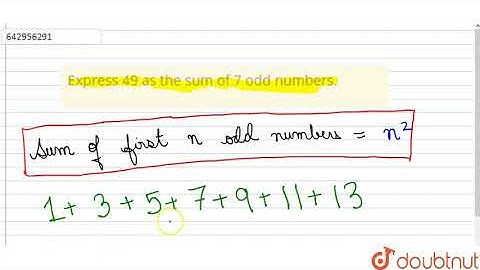 642956291
Express 49 as the sum of 7 odd numbers.
Sum of first n odd numbers = n²
1 + 3 + 5 + 7 + 9 + 11 + 13
doubtnut